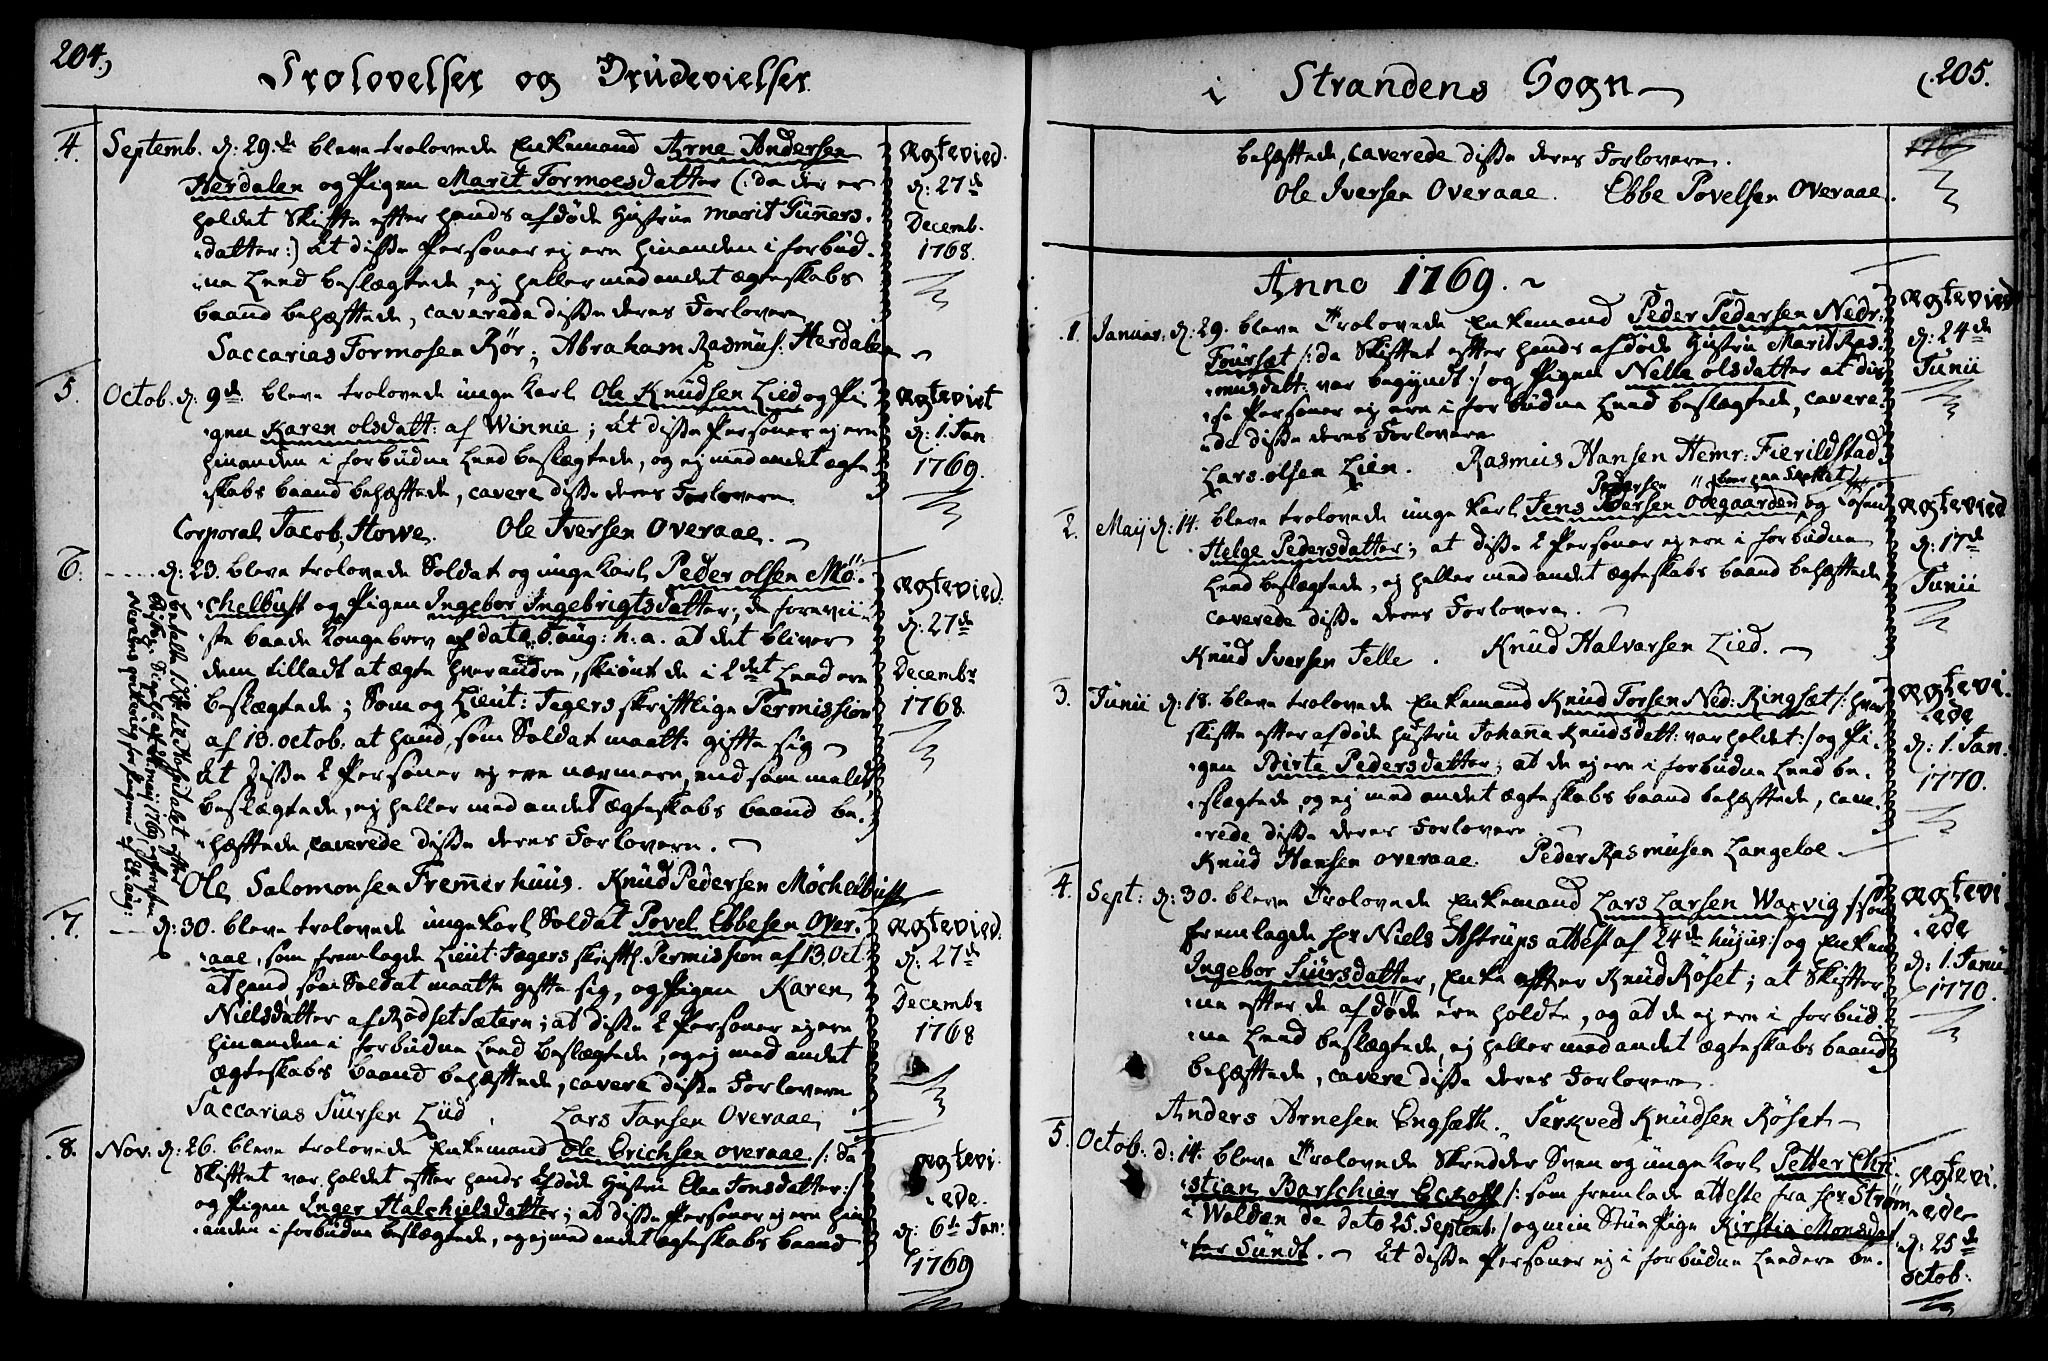 204.
Trolovelser og Brüdevielser
4. Septemb. d: 29.de bleve trolovede Enkemand Arne Andersen
Herdalen og Pigen Marit Tormoesdatter (: da der er
holdet Skifte effter hands afdøde Hustrüe Marit Gunners-
datter:) At disse Personer ej ere hinanden i forbüd-
ne Leed beslægtede, ej heller med andet ægteskabs
baand behæftede, caverede disse deres Forlovere
Saccarias Tormosen Rør; Abraham Rasmüs: Herdalen
ægtevied.
d: 27de
Decemb.
1768.
5. Octob. d: 9de bleve trolovede unge karl Ole Knüdsen Lied og Pi-
gen Karen olsdatt: af Winnie; At disse Personer ej ere
hinanden i forbüdne Leed beslægtede, og ej med andet ægte-
skabs baand behæftede, cavere disse deres Forlovere
Corporal Jacob Howe. Ole Iversen Overaae.
ægteviet
d: 1. Jan
1769.
6. d: 23. bleve trolovede Soldat og unge karl Peder olsen Mø-
chelbust og Pigen Ingebor Ingebrigtsdatter; de forevii-
ste baade Kongebrev af dato 5. aug: h. a. at det bliver
dem tilladt at ægte hverandre, skiønt de i 2det Leed ere
beslægtede; Som og Lieut: Jegers skrifftlige Permission
af 13. octob: at hand som Soldat maatte giffte sig
At Disse 2 Personer ej ere nærmere, end som meldt,
beslægtede, ej heller med andet ægteskabs baand be-
hæfftede, caverede disse deres Forlovere.
Ole Salomonsen Fremmerhuus. Knüd Pedersen Møchelbust
ægtevied:
d: 27de
Decembr
1768.
betalte 1 Rdr til Hospitalet efter
7. d: 30. bleve trolovede unge karl Soldat Povel Ebbesen Over-
aae, som fremlagde Lieut: Jegers skrifftl. Permission af 13. Oct:
at hand som Soldat maatte giffte sig, og Pigen Karen
Nielsdatter af Rødset Sætern; at disse 2 Personer ej ere
hinanden i forbüdne Leed beslægtede, og ej med andet
ægteskabs baand behæfftede, cavere disse Forlovere
Saccarias Siürsen Liid. Lars Jansen Overaae.
ægtevied:
d: 27de
Decembr
1768
8. Nov. d: 26. bleve trolovede Enkemand Ole Erichsen overaae /: da
Skifftet var holdet effter hands afdøde Hustrü Elen Jonsdatter:/
og Pigen Inger Halchielsdatter; at disse Personer ej ere hin-
anden i forbüdne beslægtede, og ej med andet ægteskabs baand
ægtevi-
ede.
d: 6te Jan:
1769
i Strandens Sogn
205.
behæfftede, caverede disse deres Forlovere.
Ole Iversen Overaae. Ebbe Povelsen Overaae.
Anno 1769.
1. Januar. d: 29. bleve Trolovede Enkemand Peder Pedersen Nedr:
Foürsæt /: da Skifftet effter hands afdøde Hustrü Marit Ras-
musdatt: var begyndt:/ og Pigen Nelle olsdatter at dis-
se Personer ej ere i forbüdne Leed beslægtede, cavere-
de disse deres Forlovere
Lars olsen Lien. Rasmus Hansen Hemr: Fierildstad
ægtevied
d: 24de
Junii
2. Maij d: 14. bleve trolovede unge karl Jens Pedersen Odegaarden og
Helge Pedersdatter; at disse 2 Personer ej ere i forbüdne
Leed beslægtede, ej heller med andet ægteskabs baand behæftede
caverede disse deres Forlovere.
Knüd Iversen Felle. Knüd Halvarsen Lied.
ægtevied
d: 17de
Junii
3. Junii d: 18. bleve trolovede Enkemand Knüd Torsen Ned: Ringsæt /: hvor
skifte effter afdøde Hustrü Johanna Knüdsdatt: var holdet:/ og Pi-
gen Birte Pedersdatter; at de ej ere i forbüdne Leed be-
slægtede, og ej med andet ægteskabs baand behæftede, cave-
rede disse deres Forlovere.
Knüd Hansen overaae. Peder Rasmusen Langeloe
ægtevi-
ede
d: 1. Jan.
1770.
4. Sept: d: 30. bleve Trolovede Enkemand Lars Larsen Warvig /: som
fremlagde hr Niels Astrups attest af 24de hujus:/ og Enken
Ingebor Siürsdatter, Enke effter Knüd Røset; at Skiffter-
ne effter de afdøde ere holdte, og at de ej ere i forbüd-
ne Leed beslægtede, ej heller med andet ægteskabs baand
behæfftede, cavere disse deres Forlovere.
Anders Arnesen Engsæth. Serkved Knüdsen Røset
ægtevi-
ede
d: 1. Janu
1770.
5. Octob. d: 14. bleve Trolovede Skredder Sven og unge karl Petter Chri-
stian Barschier Eckoff /: som fremlade atteste fra hr Strøm
i Wolden de dato 25. Septemb:/ og min Stue Pige Kirstia Monsdat-
ter Sündt. At disse Personer ej i forbüdne Leedere be-
ægtevi-
ede
d: 25de
octob: